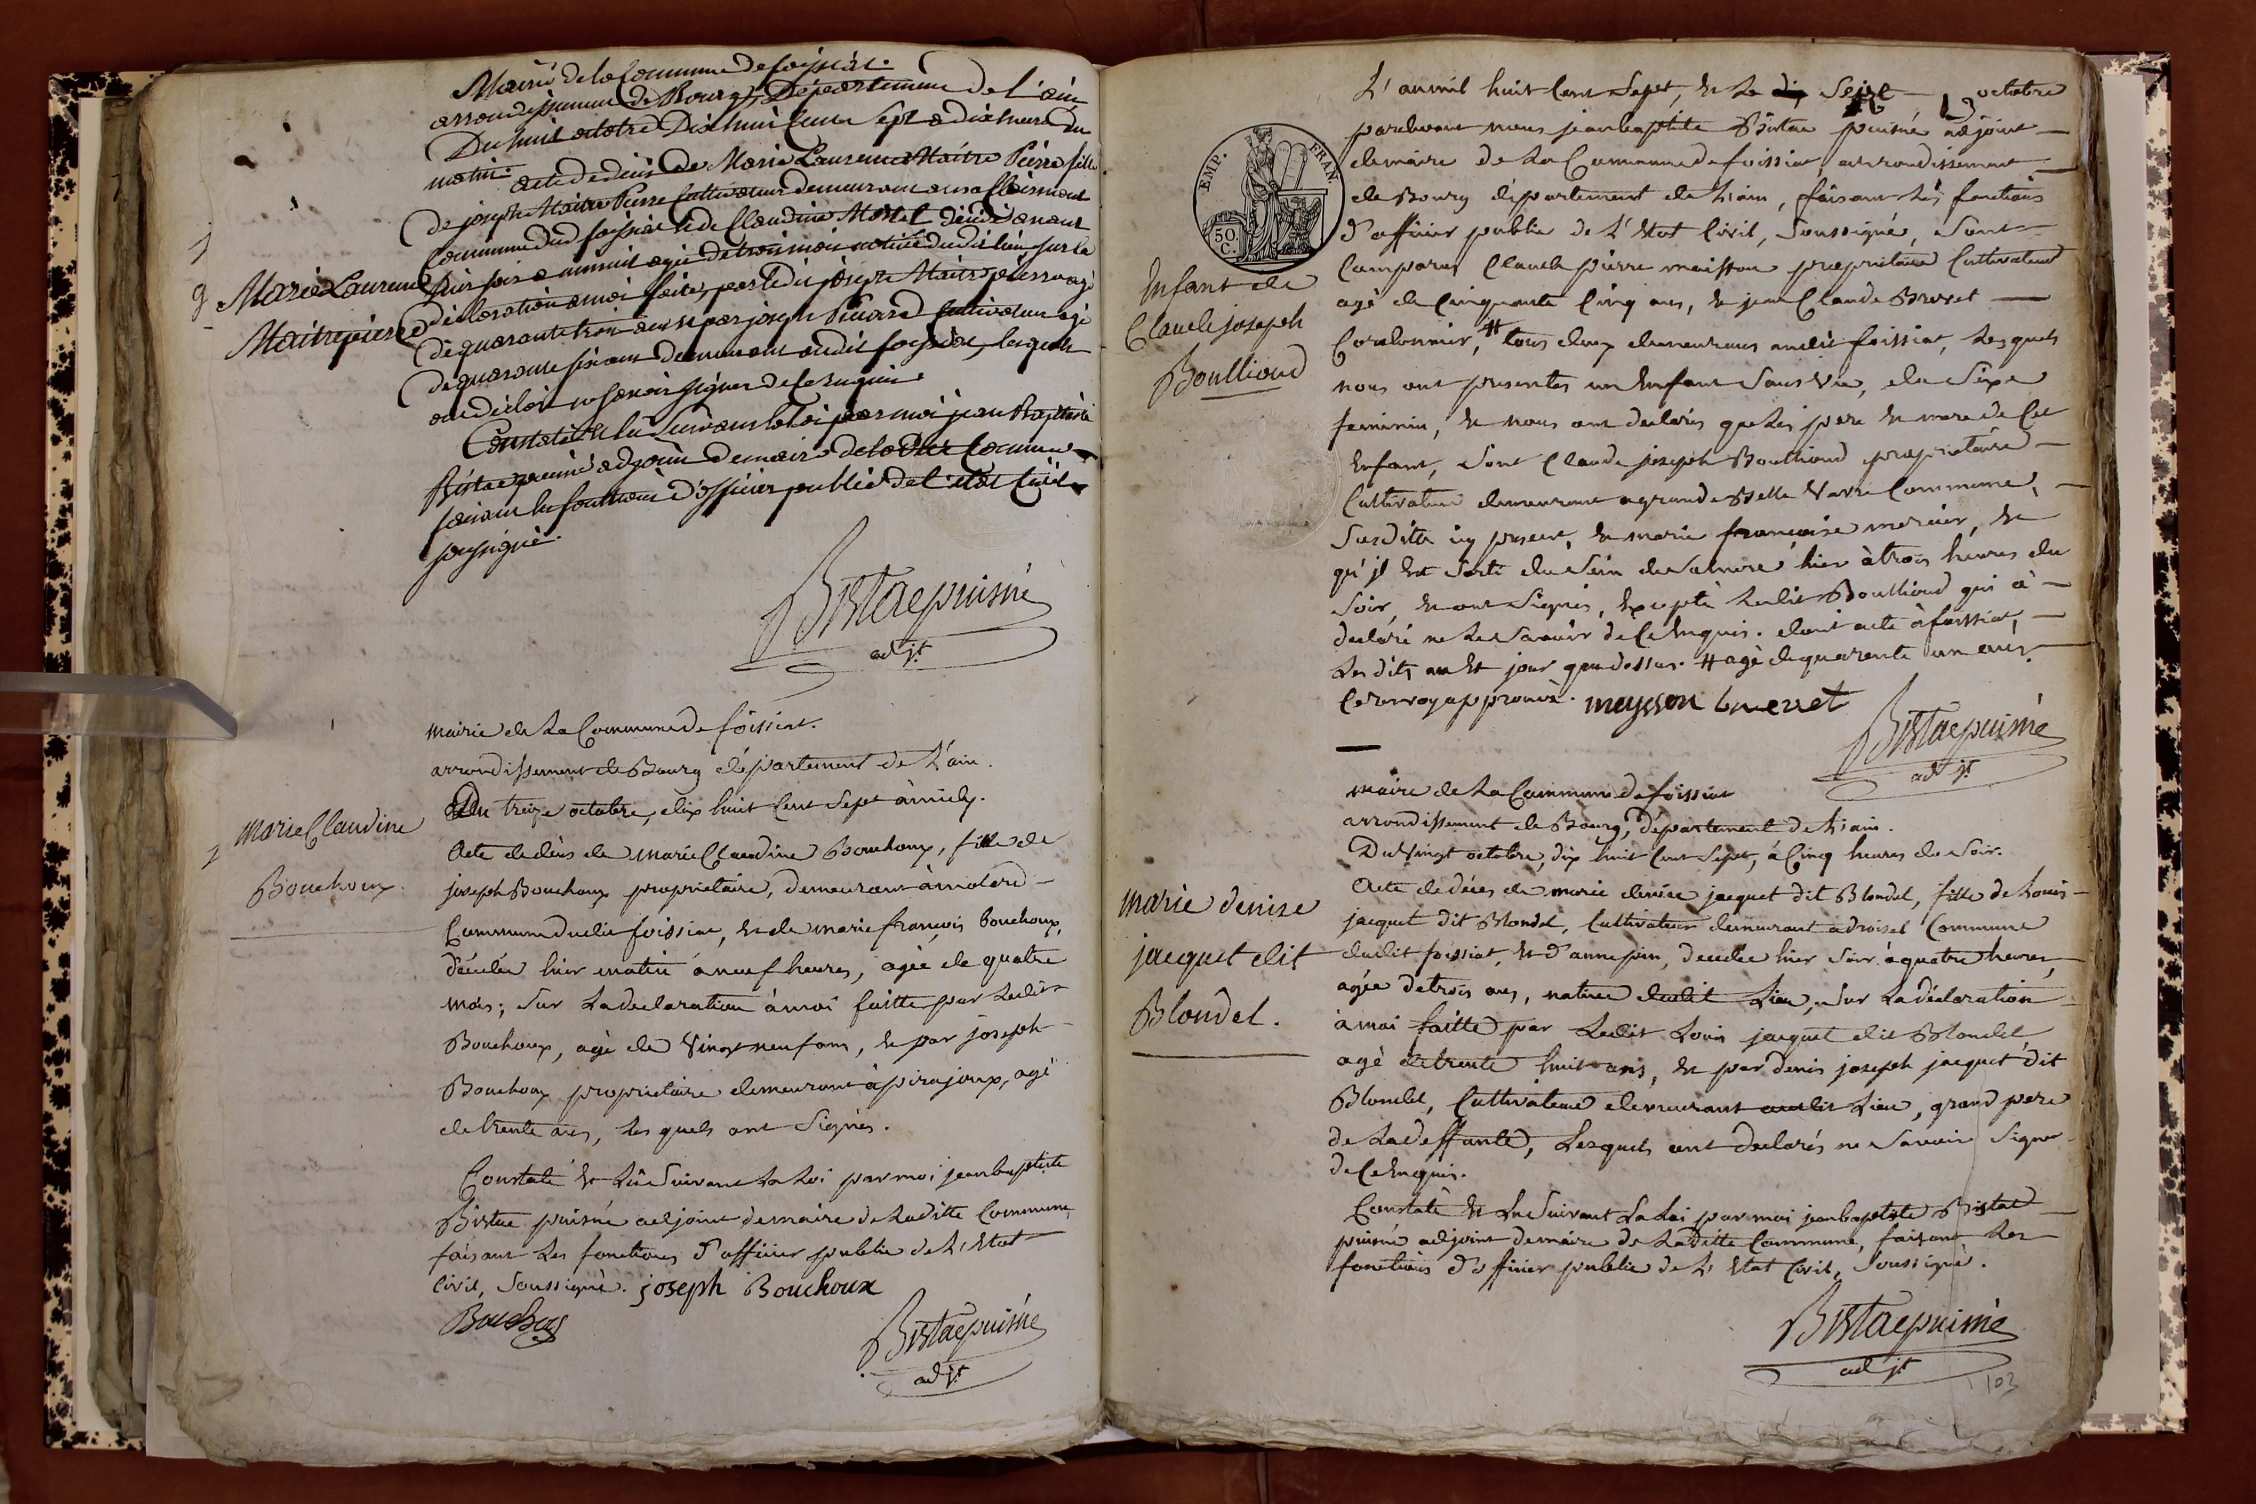 Mairie de la Commune de foissiat.
arrondissement de Bourg, Département de l'ain
Du huit octobre Dix huit Cent Sept a dix heure du
matin.
acte de décès de Marie Laurence Maitre Pierre fille
de joseph Maitre Pierre Cultivateur demeurant
Commune dud foissiat et de Claudine Morel décédé avant
hier soir a minuit agée de trois mois native dudit lieu sur la
Marie Laurence
déclaration a moi faite, par ledit joseph Maitre pierre agé
Maitrepierre
de quarante trois ans et par joseph Picard Cultivateur agé
de quarante six ans demeurant audit foissiat, lesquels
ont déclaré ne savoir signer de ce enquis.
Constaté et lu suivant la loi par moi jean Baptiste
Bistac puiné adjoint de maire de ladite Commune
faisant les fonctions d'officier public de l'état Civil
soussigné.
Bistac puisné
adjt
mairie de La Commune de foissiat.
arrondissement de Bourg département de L'ain.
Du treize octobre, dix huit Cent Sept à midy.
marie Claudine
Bouchoux.
Acte de décès de marie Claudine Bouchoux, fille de
joseph Bouchoux propriétaire, demeurant à
Commune dudit foissiat, et de marie françois bouchoux,
décédée hier matin à neuf heures, agée de quatre
mois; Sur La declaration à moi faitte par Ledit
Bouchoux, agé de Vingt neuf ans, et par joseph
Bouchoux proprietaire demeurant à pirajoux, agé
de trente ans, Les quels ont Signés.
Constaté et Lû Suivant La Loi par moi jean baptiste
Bistac puisné adjoint de maire de Laditte Commune,
faisant Les fonctions d'officier public de L'Etat
Civil, Soussigné. joseph Bouchoux
Bistac puisné
adjt
EMP. FRAN.
50 C.
L'an mil huit Cent Sept, et Le Seize octobre
pardevant nous jean baptiste Bistac puisné adjoint
de maire de La Commune de foissiat, arrondissement
de Bourg département de L'ain, faisant Les fonctions
d'officier public de L'Etat Civil, Soussigné, Sont
Comparus Claude pierre maisson proprietaire Cultivateur
Enfant de
Claude joseph
Boullioud
agé de Cinquante Cinq ans, et jean Claude Buvet
Cordonnier, # tous deux demeurans audit foissiat, Lesquels
nous ont presentés un Enfant Sans Vie, du Sexe
feminin, et nous ont declarés que Les pere et mere de Cet
Enfant, Sont Claude joseph Boullioud proprietaire
Cultivateur demeurant a grande Commune
Susditte icy present, et marie françoise mercier, et
qu'jl Est Sorti du Sein de Sa mere hier à trois heures du
Soir, et ont Signés, Excepté Ledit Boullioud qui à
declaré ne Le Savoir de Ce Enquis. dont acte à foissiat,
Les dits an et jour que dessus. # agé de quarente un ans.
Ce renvoy approuvé. meysson
Bistac puisné
adjt
mairie de La Commune de foissiat
arrondissement de Bourg, département de L'ain.
Du Vingt octobre, dix huit Cent Sept, à Cinq heures du Soir.
marie denise
jacquet dit
Blondel.
Acte de décès de marie denise jacquet dit Blondel, fille de Louis
jacquet dit Blondel, Cultivateur demeurant a Commune
dudit foissiat, et d'anne, decedée hier Soir à quatre heures,
agée de trois ans, native dudit Lieu, Sur La déclaration
à moi faitte par Ledit Louis jacquet dit Blondel,
agé de trente huit ans, et par denis joseph jacquet dit
Blondel, Cultivateur demeurant audit Lieu, grand pere
de La deffunte, Lesquels ont declarés ne Savoir Signer
de Ce Enquis.
Constaté et Lu Suivant La Loi par moi jean baptiste Bistac
puisné adjoint de maire de Laditte Commune, faisant Les
fonctions d'officier public de L'Etat Civil, Soussigné.
Bistac puisné
adjt
103